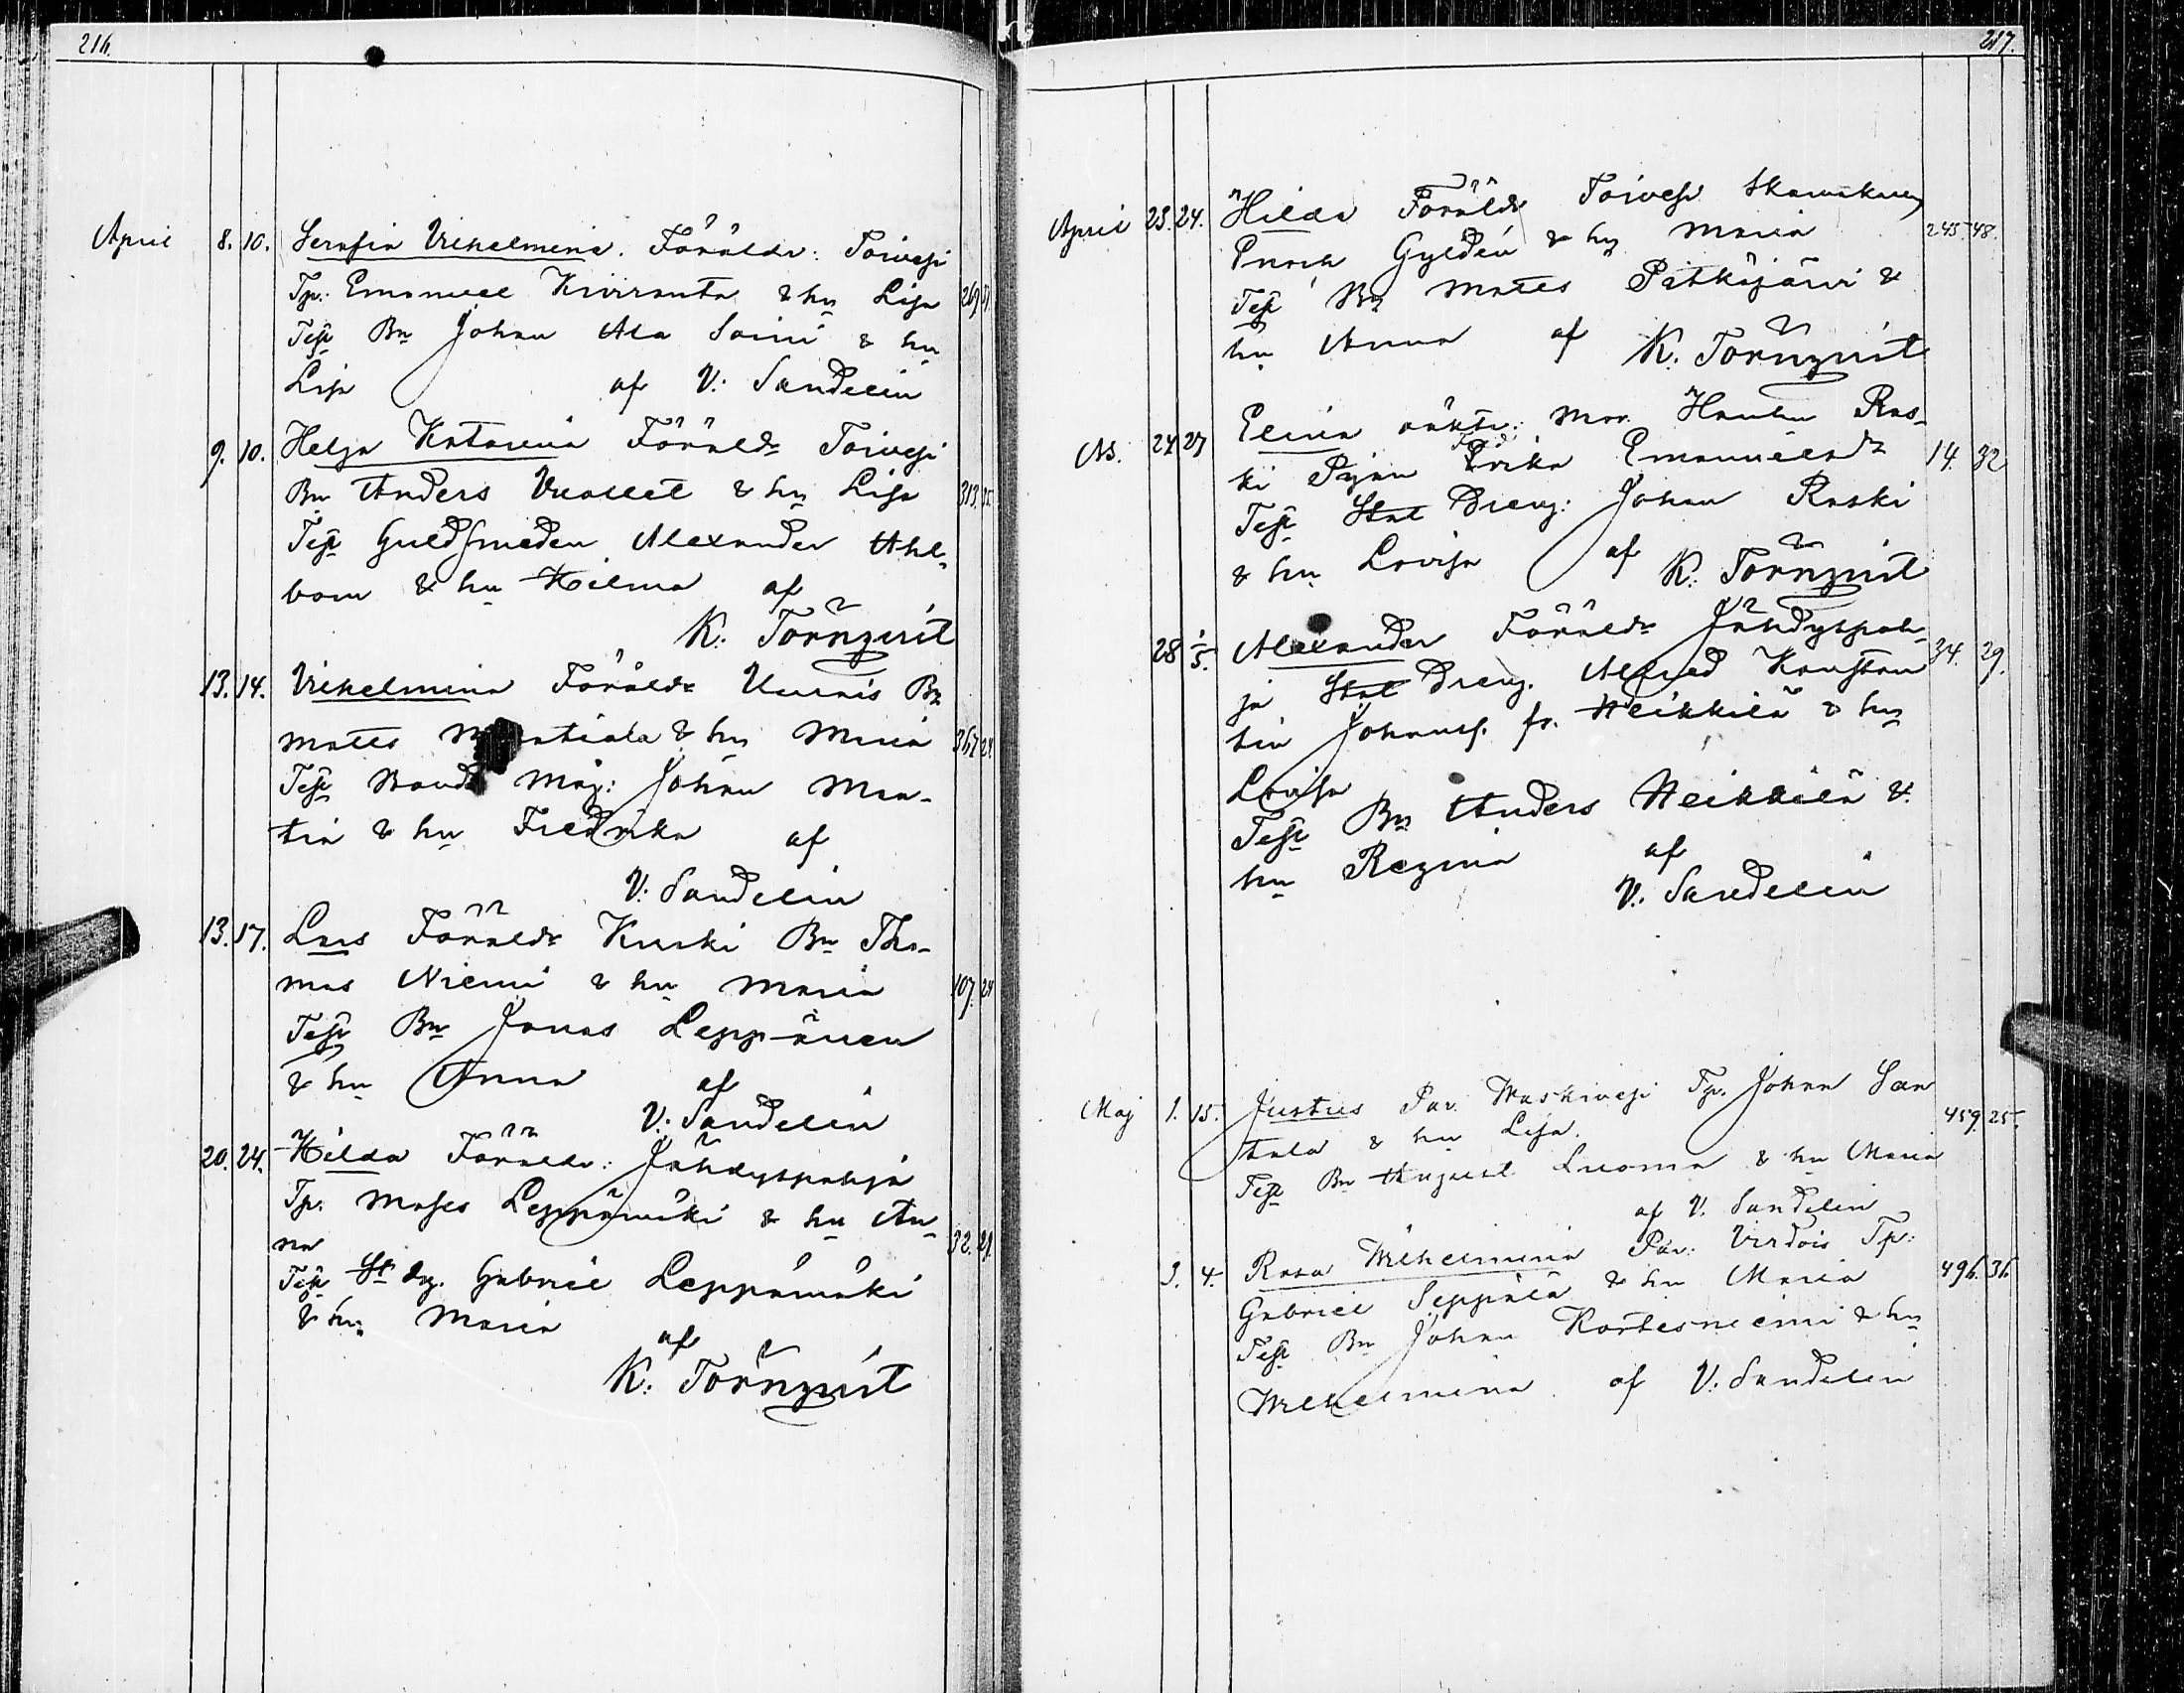 216.
April 8. 10. Serafia Vilhelmina. Föräldr: Toivesi
Tp: Emanuel Kiviranta & hu Lisa 269 31
Test Bn Johan Ala Soini & hu
Lisa af V. Sandelin
9. 10. Helga Katarina Föräldr Toivesi
Bn Anders Vuollet & hu Lisa 313 35
Test Guldsmeden Alexander Ahl-
bom & hu Hilma af
K. Törnqvist
13. 14. Vilhelmina Föräldr Bn
Matts & hu Maria 367 24
Test Bonde Måg: Johan Man-
tia & hu Fredrika af
V. Sandelin
13. 17. Lars Föräldr Kurki Bn Tho-
mas Niemi & hu Maria 107. 24
Test Bn Jonas Leppänen
& hu Anna af
V. Sandelin
20. 24. Hilda Föräldr: Jähdyspohja
Tp. Moses Leppämäki & hu An-
na 32. 29.
Test St drg. Gabriel Leppämäki
& hu Maria af
K. Törnqvist
217.
April 23. 24. Hilda Föräldr Toivesi Skomakaren
Enoch Gyldén & hu Maria 245. 48.
Test Bn Matts Pitkäjärvi &
hu Anna af K. Törnqvist
Ns. 24 27 Elina oäkta: Mor. Hanhu Ras-
ki Pigan Erika Emanuelsdr 14. 32
Test Stat Dreng: Johan Raski
& hu Lovisa af K. Törnqvist
28 1/5. Alexander Föräldr Jähdyspoh-
ja Stat Dreng. Alfred Konstan 34. 29.
tin Johanss. fr. Heikkilä & hu
Lovisa
Test Bn Anders Heikkilä &
hu Regina af
V. Sandelin
Maj 1. 15. Justus Par. Waskivesi Tp. Johan San
tala & hu Lisa. 459. 25.
Test Bn August Luoma & hu Maria
af V. Sandelin
3. 4. Rosa Wilhelmina Par: Virdois Tp:
Gabriel Seppälä & hu Maria 496. 36
Test Bn Johan Kortesniemi & hu
Wilhelmina af V. Sandelin